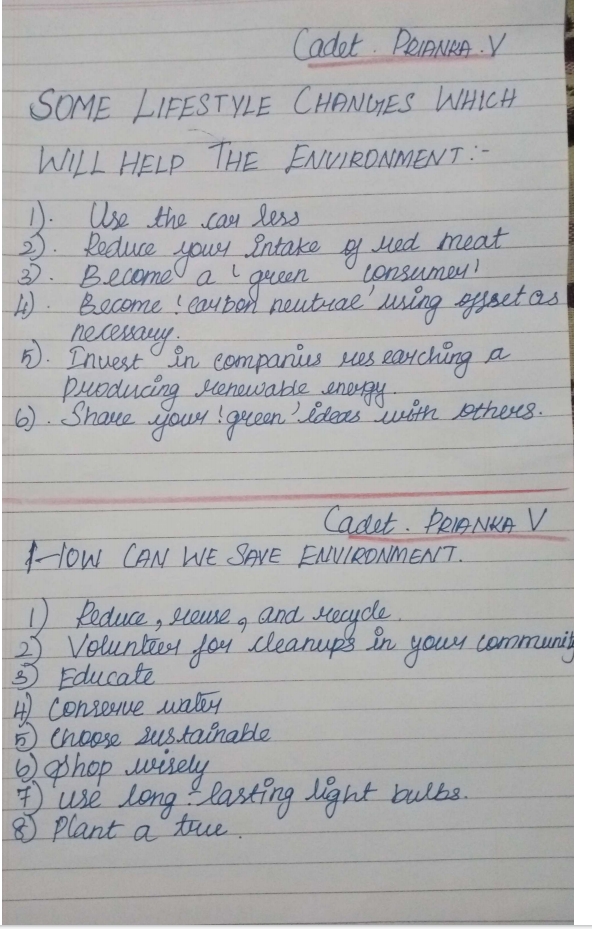 Cadet . PRIANKA . V
SOME LIFESTYLE CHANGES WHICH
WILL HELP THE ENVIRONMENT :-
1). Use the car less
2). Reduce your intake of red meat
3). Become a 'green consumer'
4). Become 'carbon neutral' using offset as
necessary.
5). Invest in companies researching a
producing renewable energy.
6). Share your 'green' ideas with others.
Cadet . PRIANKA V
HOW CAN WE SAVE ENVIRONMENT.
1) Reduce, reuse, and recycle.
2) Volunteer for cleanups in your communit
3) Educate
4) Conserve water
5) Choose sustainable
6) Shop wisely
7) Use long-lasting light bulbs.
8) Plant a tree.